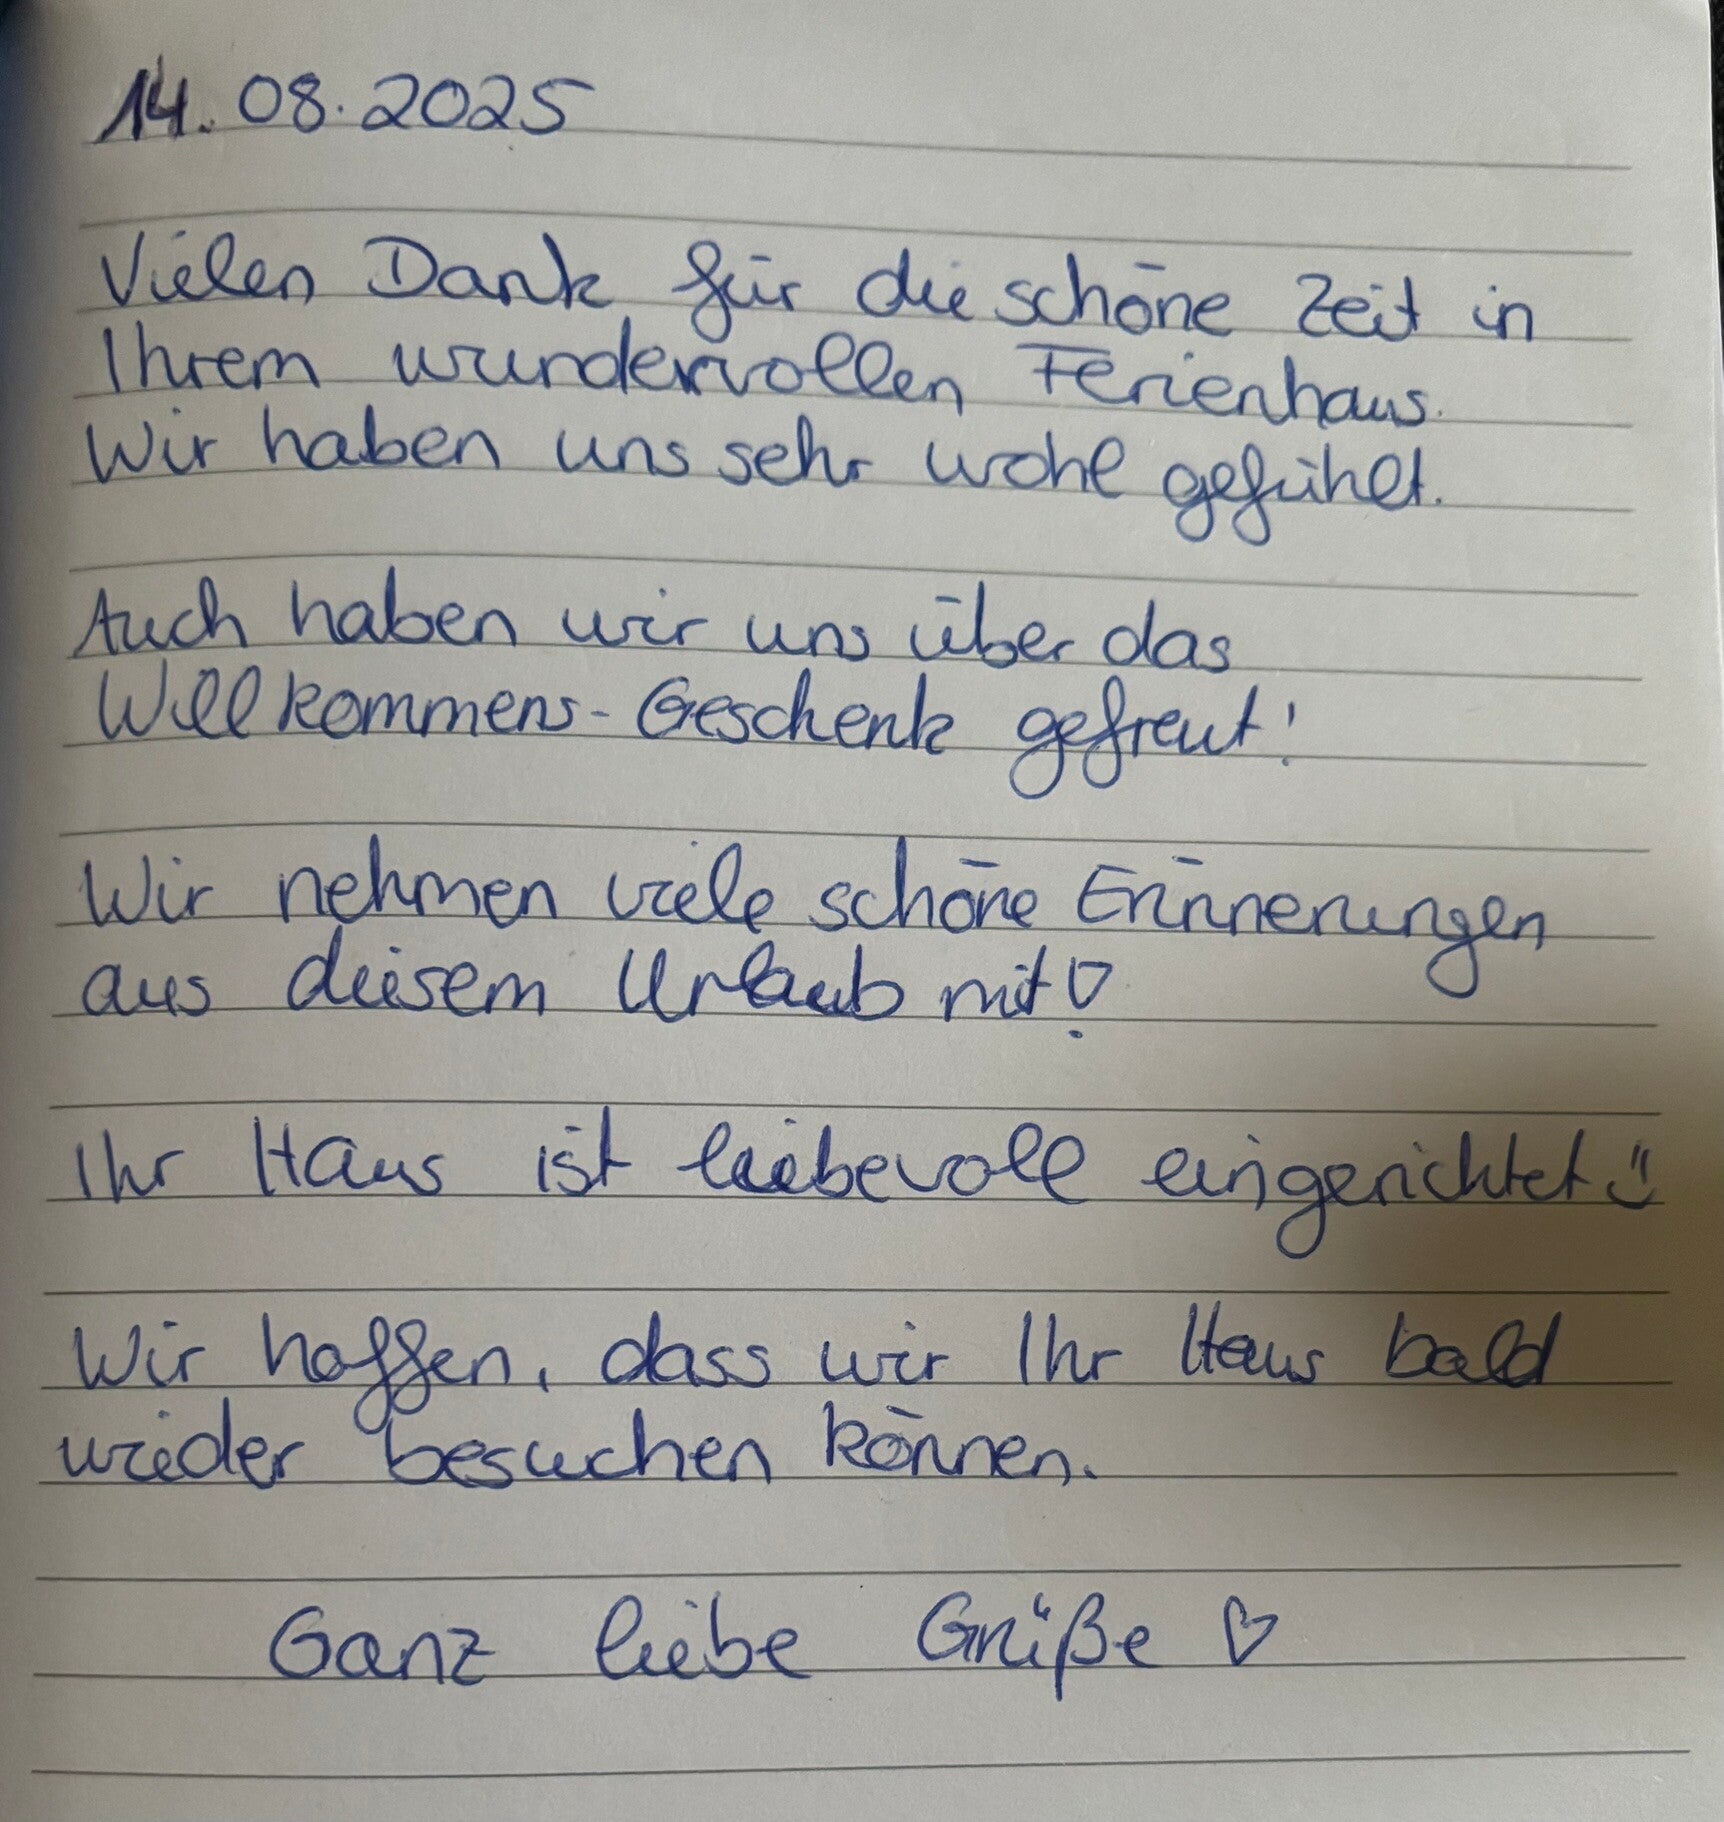 14.08.2025
Vielen Dank für die schöne Zeit in
Ihrem wundervollen Ferienhaus.
Wir haben uns sehr wohl gefühlt.
Auch haben wir uns über das
Willkommens-Geschenk gefreut!
Wir nehmen viele schöne Erinnerungen
aus diesem Urlaub mit♡
Ihr Haus ist liebevoll eingerichtet ü
Wir hoffen, dass wir Ihr Haus bald
wieder besuchen können.
Ganz liebe Grüße ♡